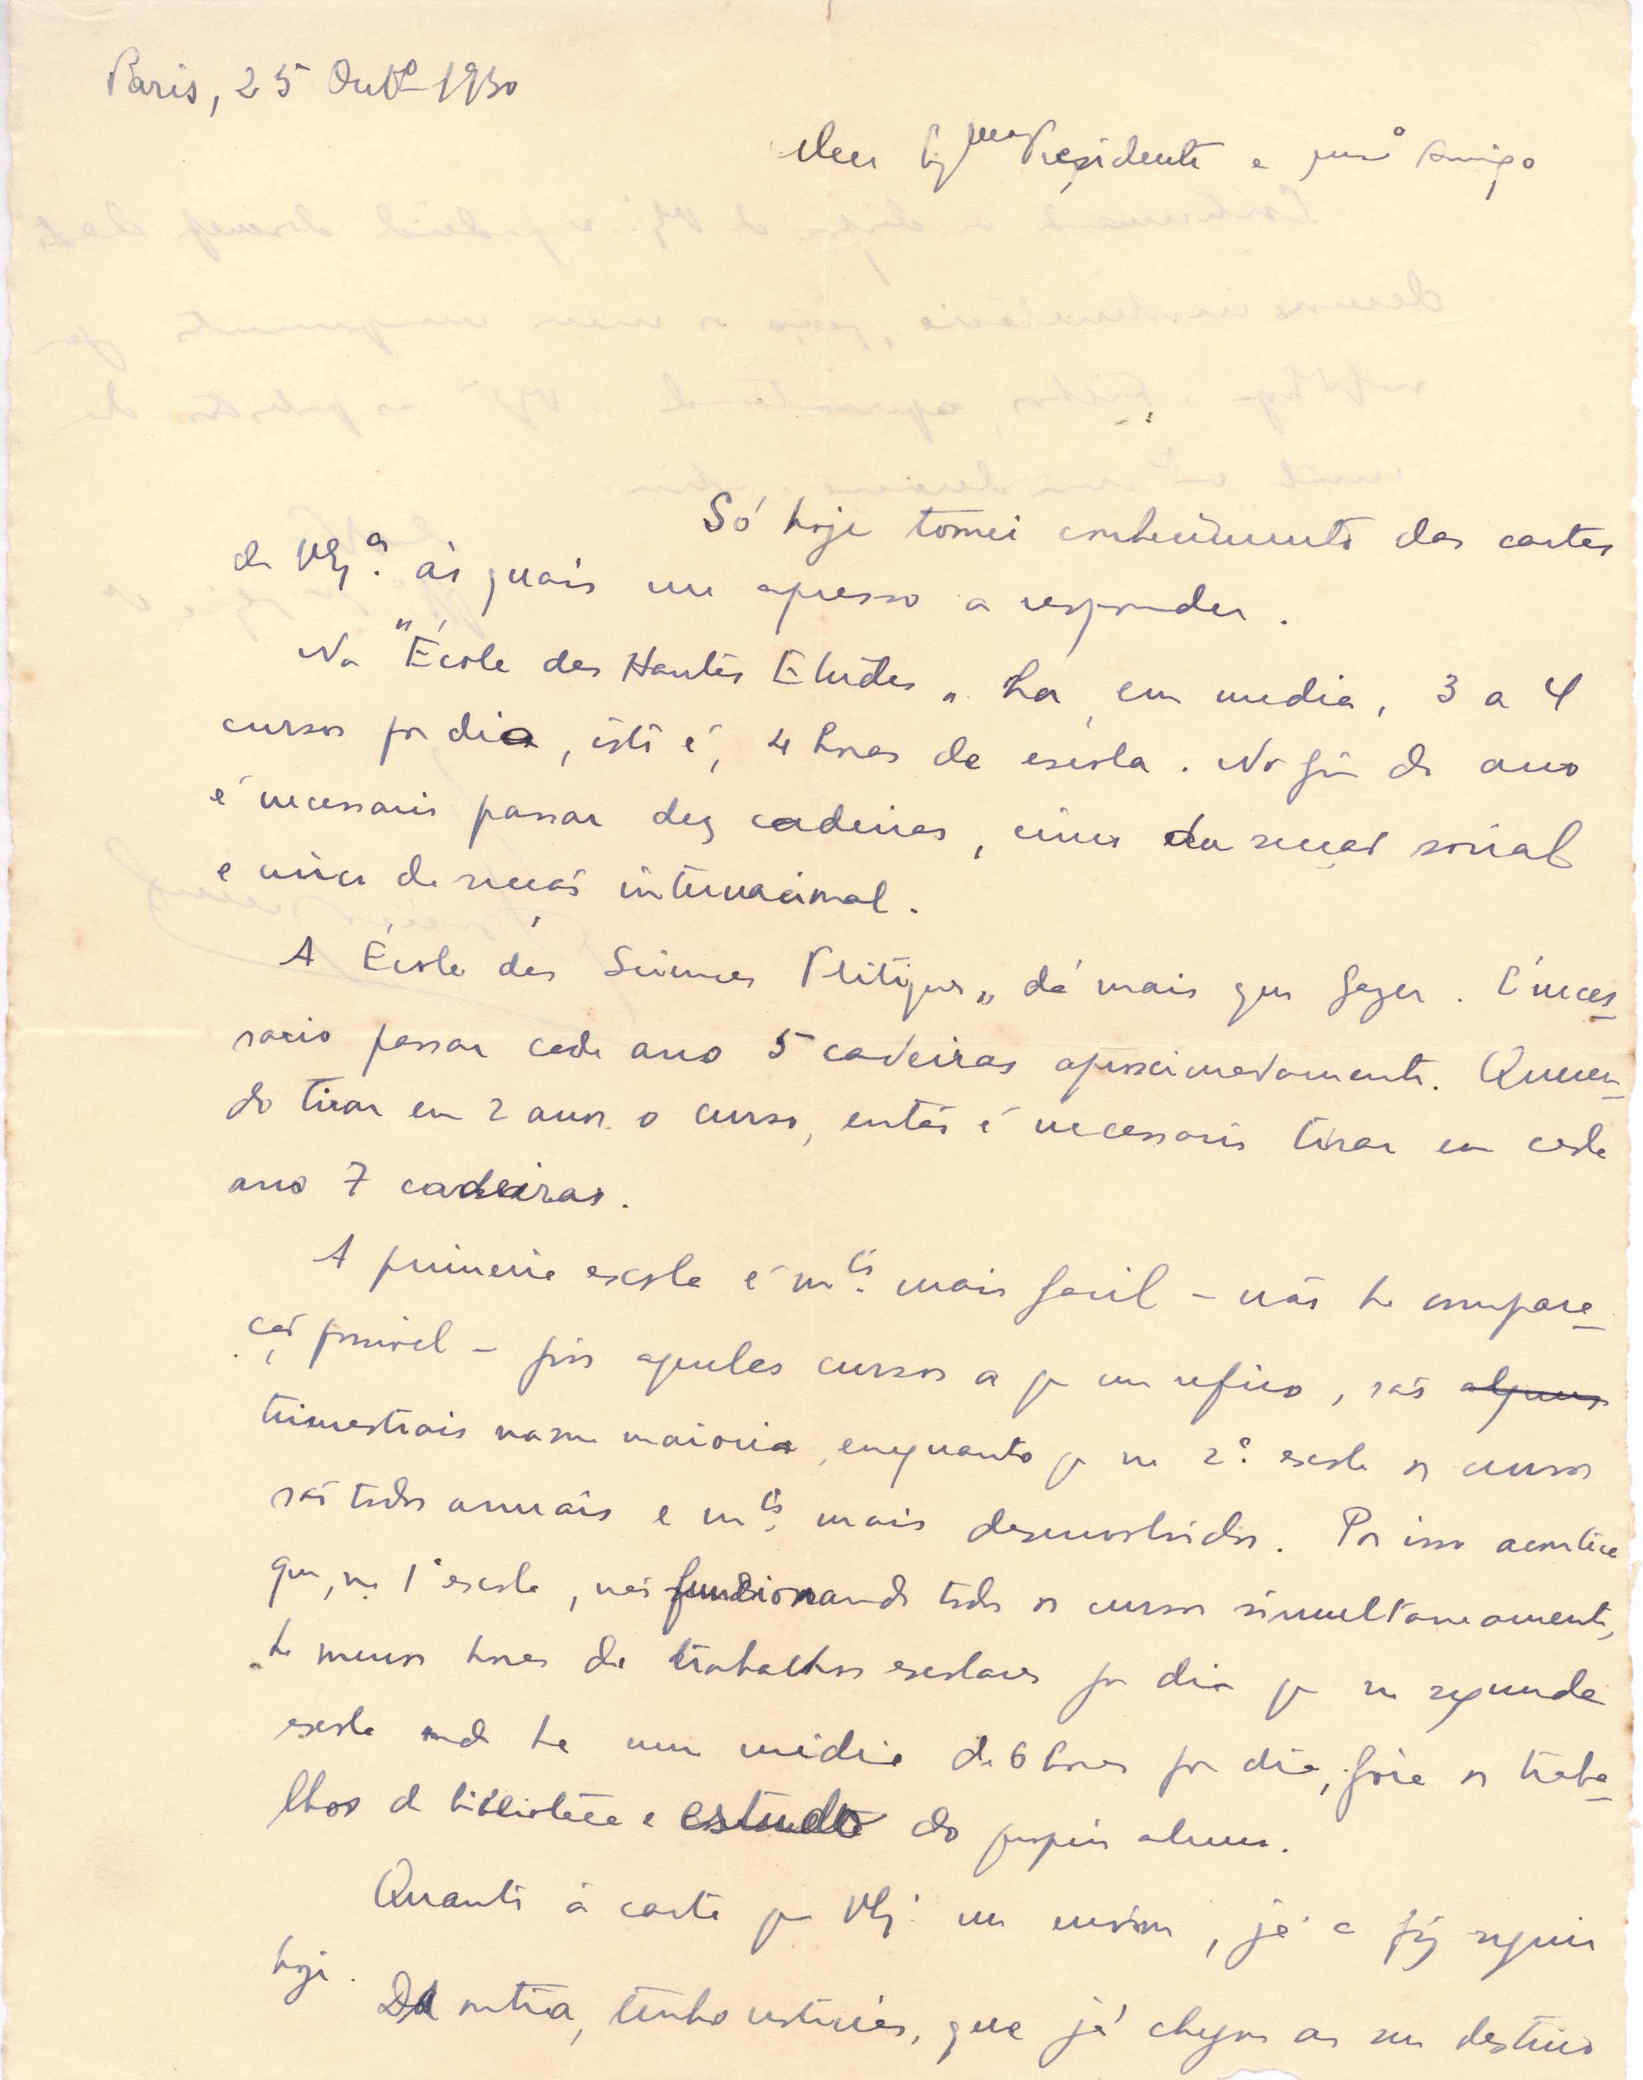 Paris, 25 Outº 1930
Meu Exmo Presidente e presº amigo
Só hoje tomei conhecimento das cartas
de VExª. às quais me apresso a responder.
Na "École des Hautes Etudes" ha, em media, 3 a 4
cursos por dia, isto é, 4 horas de escola. No fim do ano
é necessario passar dez cadeiras, cinco da secção social
e cinco da secção internacional.
A École des Sciences Politiques" dá mais que fazer. É neces-
sario passar cada ano 5 cadeiras aproximadamente. Queren-
do tirar em 2 anos o curso, então é necessario tirar em cada
ano 7 cadeiras.
A primeira escola é mto. mais facil - não ha compara-
ção possivel - pois aqueles cursos a que me refiro, são alguns
trimestrais na sua maioria, enquanto que na 2ª escola os cursos
são todos anuais e mto. mais desenvolvidos. Por isso acontece
que, na 1ª escola, não funcionando todos os cursos simultaneamente,
ha menos horas de trabalhos escolares por dia que na segunda
escola onde ha uma média de 6 horas por dia, fóra os traba-
lhos de biblioteca e estudo do proprio aluno.
Quanto á carta que VExª. me enviou, já a fiz seguir
hoje.
Da outra, tenho noticias, que já chegou ao seu destino